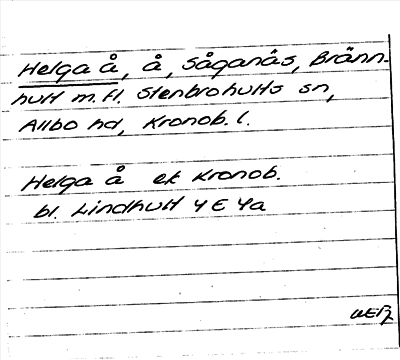 Helga å, å, Såganäs, Bränn-
hult m.fl. Stenbrohults sn,
Allbo hd, Kronob. l.
Helga å ek Kronob.
bl. Lindhult 4 E 4a